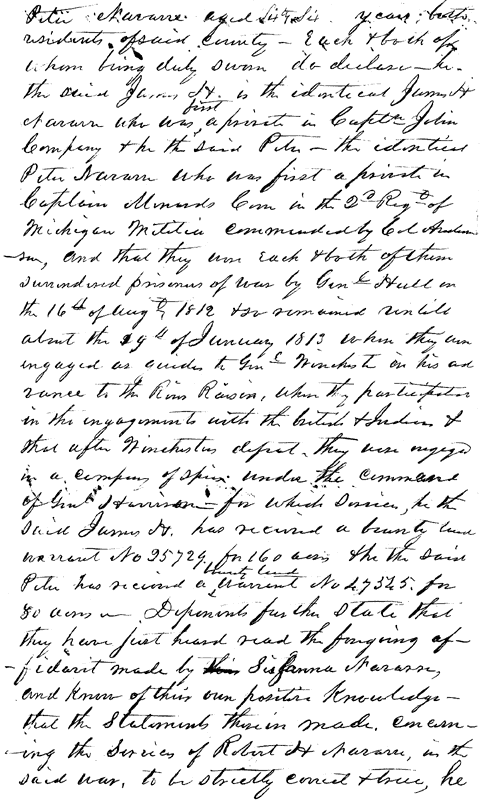 Peter Navarre aged Sixty Six years, both
residents of said county - Each & both of
whom being duly sworn do declare - he
the said James H. is the identical James H
Navarre who was first a private in Captn John
Company & he the said Peter - the identical
Peter Navarre who was first a private in
Captain Menards Com in the 2d Regt of
Michigan Militia commanded by Col Anders
son, and that they were Each & both of them
surrendered prisoners of war by Genl Hull on
the 16th of Augt, 1812 & so remained untill
about the 19th of January 1813 when they were
engaged as guides to Genl Winchester on his ad
vance to the River Raisin, when they participated
in the engagements with the british & Indians &
that after Winchesters defeat, they were engaged
in a company of spies under the command
of Genl Harrison - for which Services, he the
said James H. has received a bounty land
warrant No 95729, for 160 acres & he the said
Peter has received a bounty land warrant No 47525. for
80 acres - Deponents further State that
they have just heard read the foregoing af-
fidavit made by Susanna Navarre,
and know of their own positive Knowledge -
that the Statements therein made, concern-
ing the Services of Robert H Navarre, in the
said war, to be strictly correct & true, he